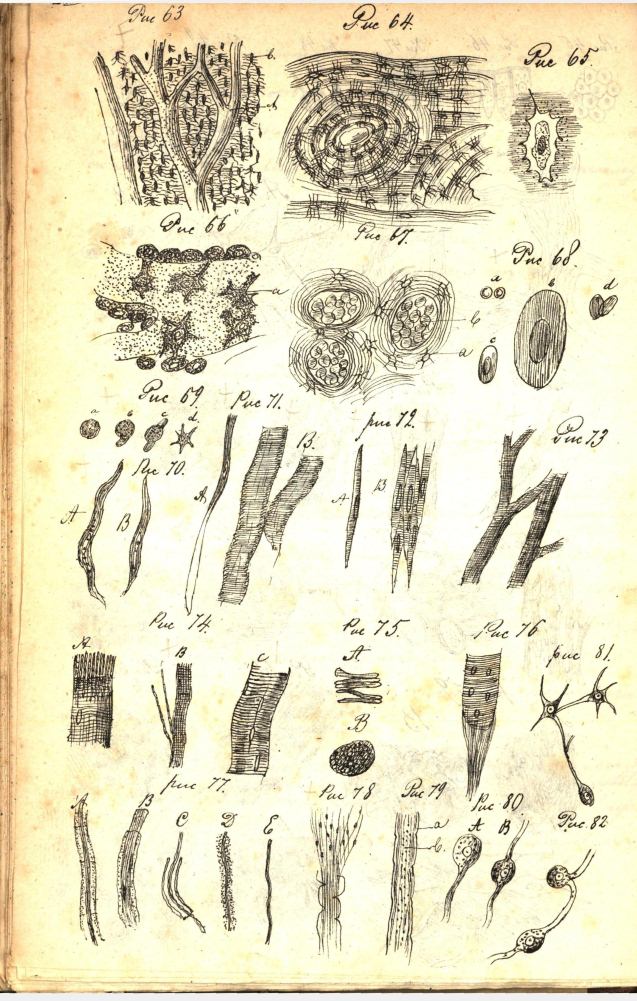 Рис 63
Рис 64.
Рис 65.
b.
A.
Рис 66
Рис 67.
Рис 68.
a
a
b
a
c
b
d
Рис 69
a
b
c
d
Рис 70.
A
B
Рис 71.
A
B.
рис 72.
A
B
Рис 73
Рис 74.
A
B
C
Рис 75.
A.
B
Рис 76
рис 81.
рис 77.
A
B
C
D
E
Рис 78
Рис 79
a
b.
Рис 80
A
B
Рис. 82